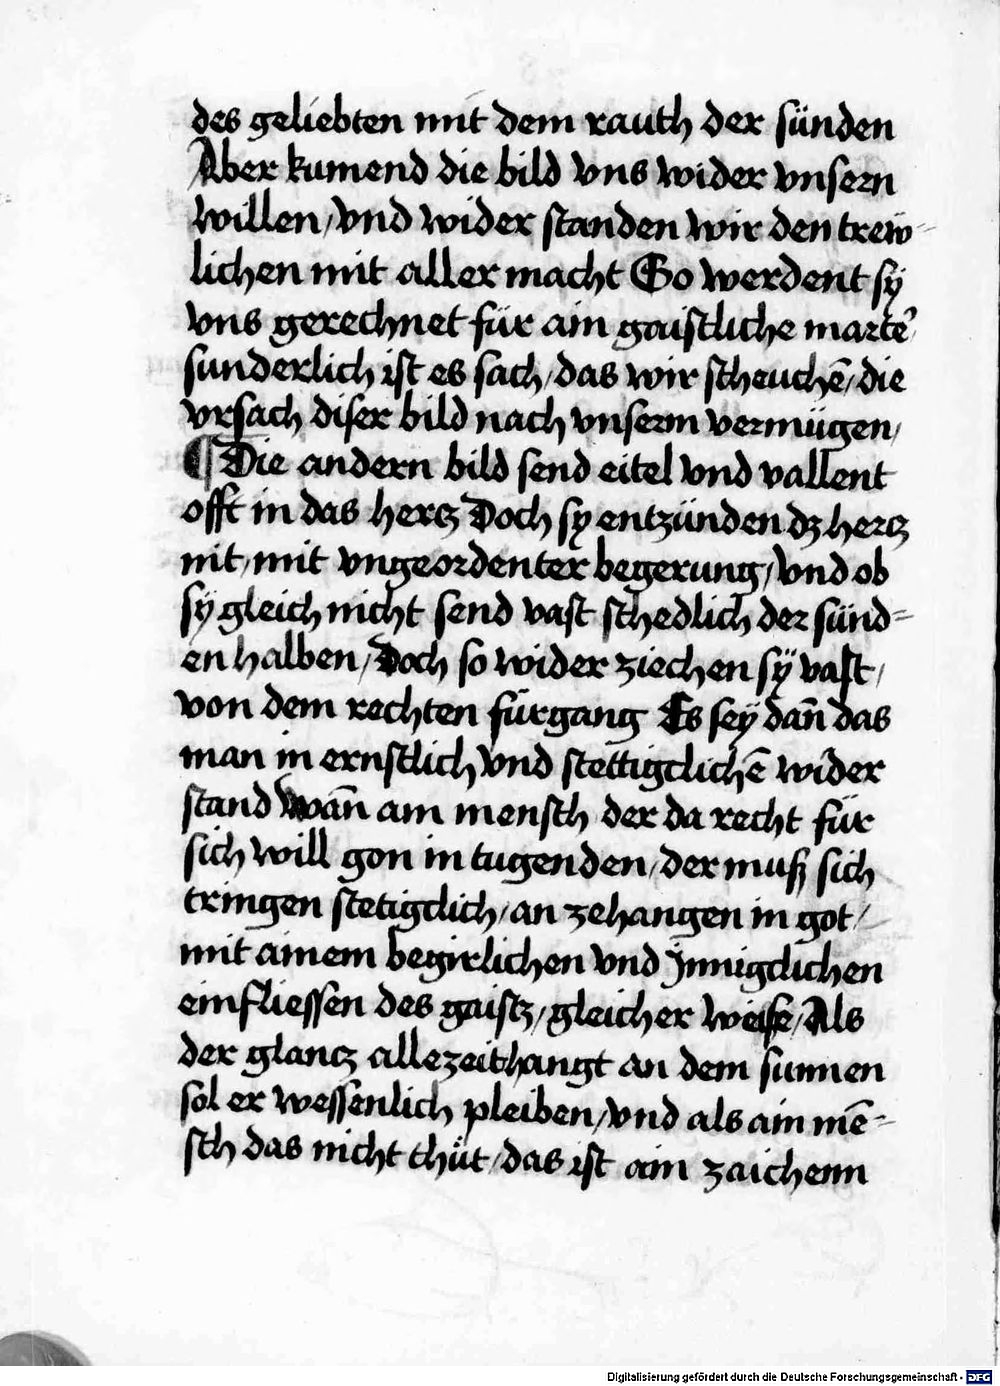 des geliebten mit dem rauch der sünden
Aber kumend die bild vns wider vnsern
willen / vnd wider standen wir den trew-
lichen mit aller macht So werdent sÿ
vns gerechnet für ain gaistliche marte᾽
sunderlich ist es sach / das wir scheuchē / die
vrsach diser bild nach vnserm vermügen /
¶ Die andern bild send eitel vnd vallent
offt in das hertz Doch sy entzünden dz hertz
nit / mit vngeordenter begerung / vnd ob
sÿ gleich nicht send vast schedlich der sünd=
en halben / Doch so wider ziechen sÿ vast /
von dem rechten fürgang Es seÿ dan̄ das
man in ernstlich vnd stettigclichē wider
stand Wan̄ ain mensch der da recht für
sich will gon in tugenden / der muß sich
tringen stetigclich / an zehangen in got /
mit ainem begirlichen vnd Jnnigclichen
einfliessen des gaistz / gleicher weise / Als
der glantz allezeit hangt an dem sunnen
sol er wessenlich pleiben / vnd als ain mē=
sch das nicht thüt / das ist ain zaichenn
Digitalisierung gefördert durch die Deutsche Forschungsgemeinschaft - DFG